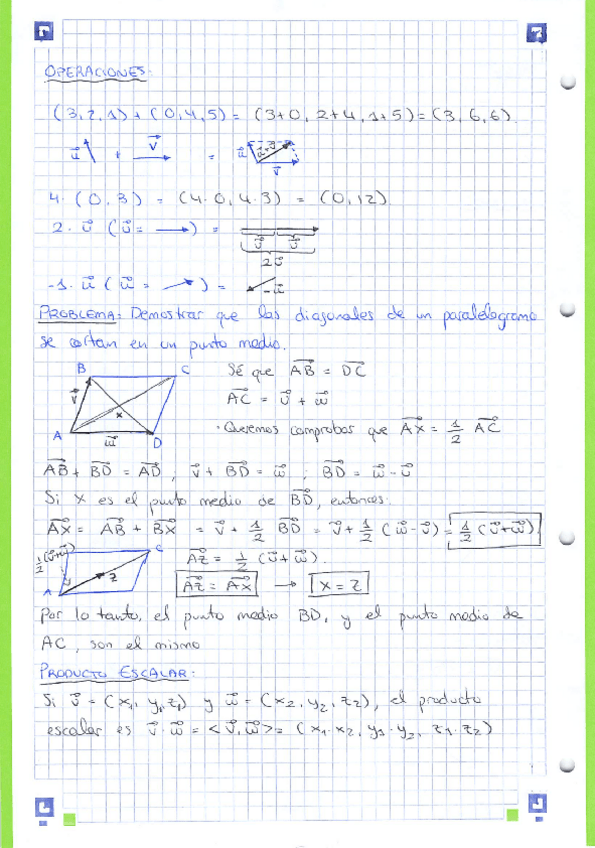 OPERACIONES:
(3,2,1) + (0,4,5) = (3+0, 2+4, 1+5) = (3, 6, 6).
u⃗ + v⃗ = u⃗ u⃗+v⃗ v⃗
4 · (0, 3) = (4·0, 4·3) = (0, 12)
2 · v⃗ (v⃗ = →) = v⃗ v⃗
2v⃗
-1 · u⃗ ( u⃗ = ↗ ) = -u⃗
PROBLEMA: Demostrar que las diagonales de un paralelogramo
se cortan en un punto medio.
B C Sé que AB⃗ = DC⃗
v⃗ x AC⃗ = v⃗ + w⃗
A w⃗ D · Queremos comprobar que AX⃗ = 1/2 AC⃗
AB⃗ + BD⃗ = AD⃗ ; v⃗ + BD⃗ = w⃗ ; BD⃗ = w⃗ - v⃗
Si X es el punto medio de BD⃗, entonces:
AX⃗ = AB⃗ + BX⃗ = v⃗ + 1/2 BD⃗ = v⃗ + 1/2 (w⃗ - v⃗) = 1/2 (v⃗ + w⃗)
1/2 (v⃗+w⃗) C AZ⃗ = 1/2 (v⃗ + w⃗)
A Z AZ⃗ = AX⃗ → X = Z
Por lo tanto, el punto medio BD, y el punto medio de
AC, son el mismo
PRODUCTO ESCALAR:
Si v⃗ = (x₁, y₁, z₁) y w⃗ = (x₂, y₂, z₂), el producto
escalar es v⃗ · w⃗ = <v⃗, w⃗> = (x₁ · x₂, y₁ · y₂, z₁ · z₂)